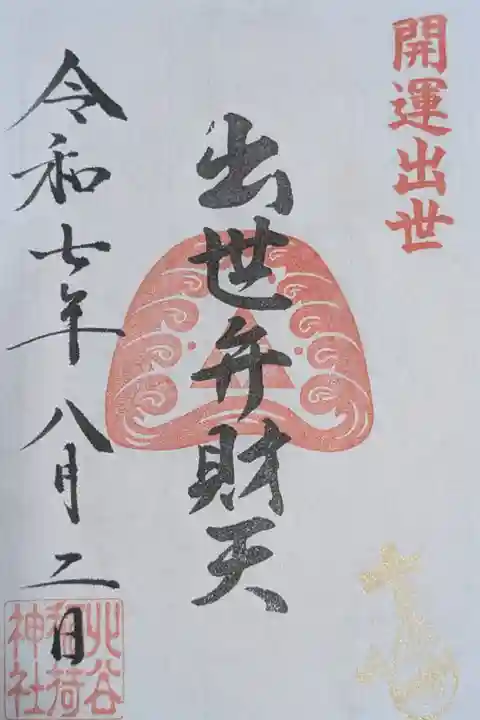 開運出世
出世弁財天
令和七年八月二日
北谷稲荷神社